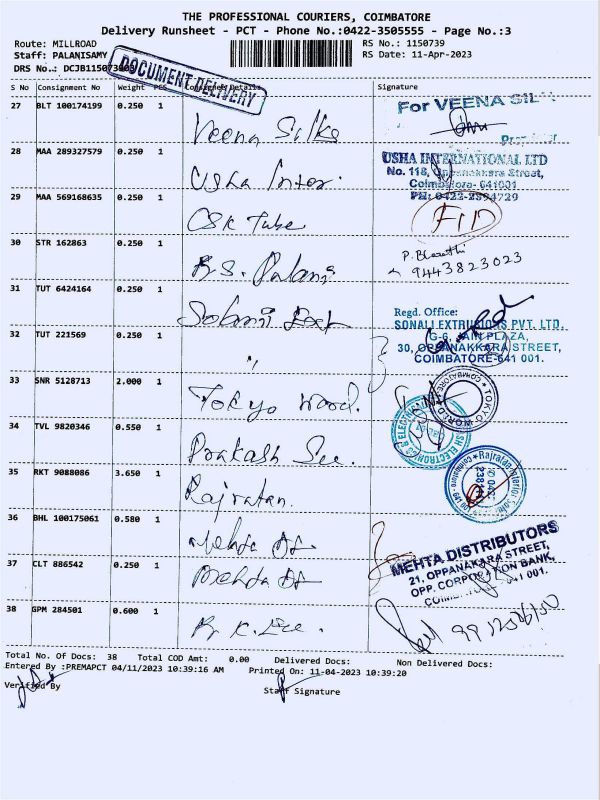 THE PROFESSIONAL COURIERS, COIMBATORE
Delivery Runsheet - PCT - Phone No.:0422-3505555 - Page No.:3
Route: MILLROAD RS No.: 1150739
Staff: PALANISAMY RS Date: 11-Apr-2023
DRS No.: DCJB115073
DOCUMENT DELIVERY
S No Consignment No Weight PCS Details Signature
27 BLT 100174199 0.250 1 Veena Silks For VEENA
28 MAA 289327579 0.250 1 Usha Inter. USHA INTERNATIONAL LTD
No. 118, Oppanakkara Street,
Coimbatore- 641001
PH: 0422-2394729
29 MAA 569168635 0.250 1 CSK Tube
30 STR 162863 0.250 1 R.S. Palani P. Bharathi
9443823023
31 TUT 6424164 0.250 1 Regd. Office:
SONALI EXTRUSIONS PVT. LTD.
G-6, JAIN PLAZA,
30, OPPANAKKARA STREET,
COIMBATORE-641 001.
32 TUT 221569 0.250 1 "
33 SNR 5128713 2.000 1 Tokyo Wood. TOKYO WORLD COIMBATORE
34 TVL 9820346 0.550 1 Prakash
35 RKT 9088086 3.650 1 Rajratan.
36 BHL 100175061 0.580 1 Mehta
MEHTA DISTRIBUTORS
21, OPPANAKARA STREET,
OPP. CORPORATION BANK,
37 CLT 886542 0.250 1 Mehta
38 GPM 284501 0.600 1
Total No. Of Docs: 38 Total COD Amt: 0.00 Delivered Docs: Non Delivered Docs:
Entered By :PREMAPCT 04/11/2023 10:39:16 AM Printed On: 11-04-2023 10:39:20
Verified By Staff Signature